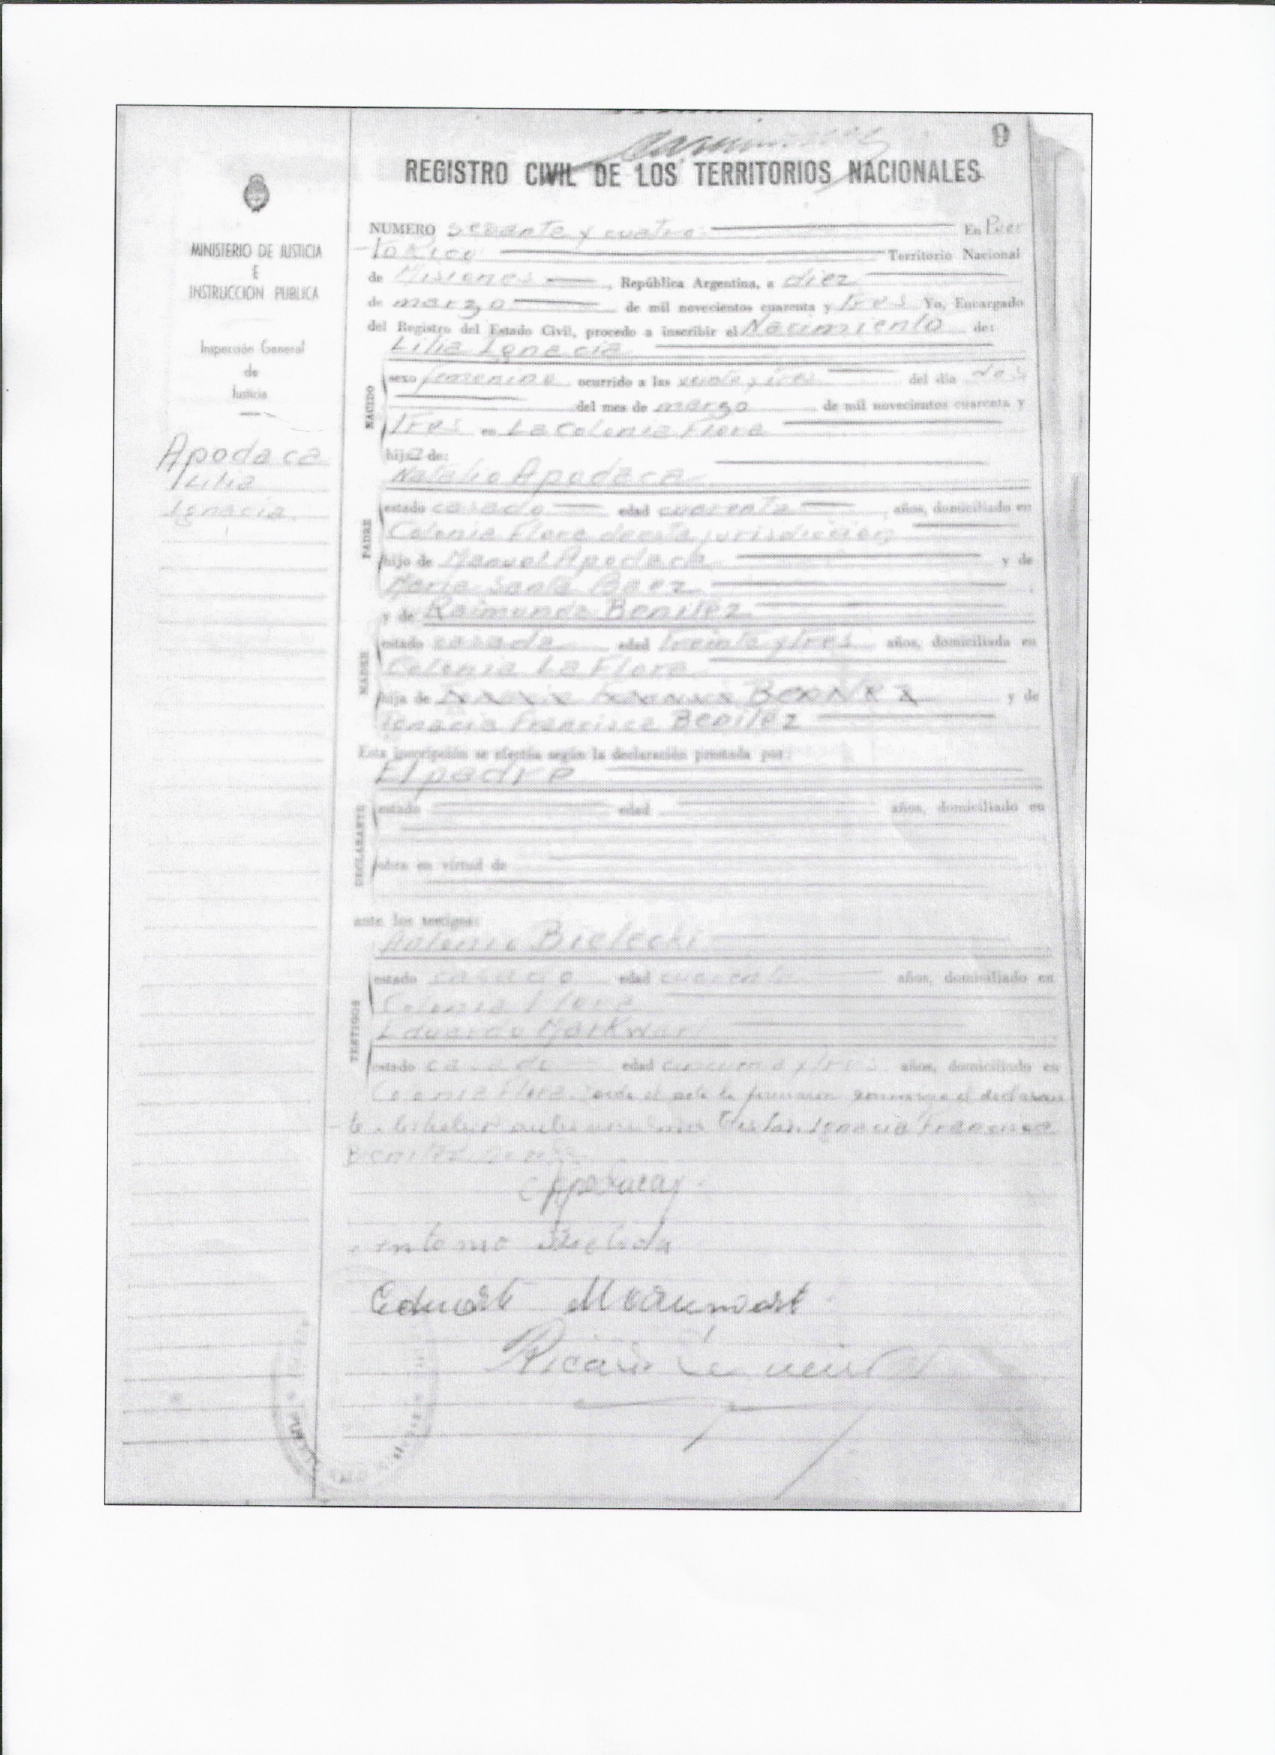 9
REGISTRO CIVIL DE LOS TERRITORIOS NACIONALES
MINISTERIO DE JUSTICIA
E
INSTRUCCION PUBLICA
Inspección General
de
Justicia
Apodaca
Lilia
Ignacia
NUMERO y cuatro En Puer
to Rico Territorio Nacional
de Misiones, República Argentina, a diez
de marzo de mil novecientos cuarenta y tres Yo, Encargado
del Registro del Estado Civil, procedo a inscribir el Nacimiento de:
Lilia Ignacia
NACIDO
sexo femenino ocurrido a las veinte y tres del día dos
del mes de marzo de mil novecientos cuarenta y
Tres en La Colonia Flora
hija de:
Natalio Apodaca
PADRE
estado casado edad cuarenta, años, domiciliado en
Colonia Flora de esta jurisdicción
hijo de Manuel Apodaca y de
Maria Santa Baez
y de Raimunda Benitez
MADRE
estado casada edad treinta y tres años, domiciliada en
Colonia La Flora
hija de Benitez y de
Ignacia Francisca Benitez
Esta inscripción se efectúa según la declaración prestada por:
El padre
DECLARANTE
estado edad años, domiciliado en
obra en virtud de
ante los testigos:
Antonio Bielecki
TESTIGOS
estado casado edad cuarenta años, domiciliado en
Colonia Flora
Eduardo Markwart
estado casado edad cincuenta y tres años, domiciliado en
Colonia Flora. el acta la firmaron el declaran
te Ignacia Francisca
Benitez
Apodaca
Antonio
Eduart
Ricardo